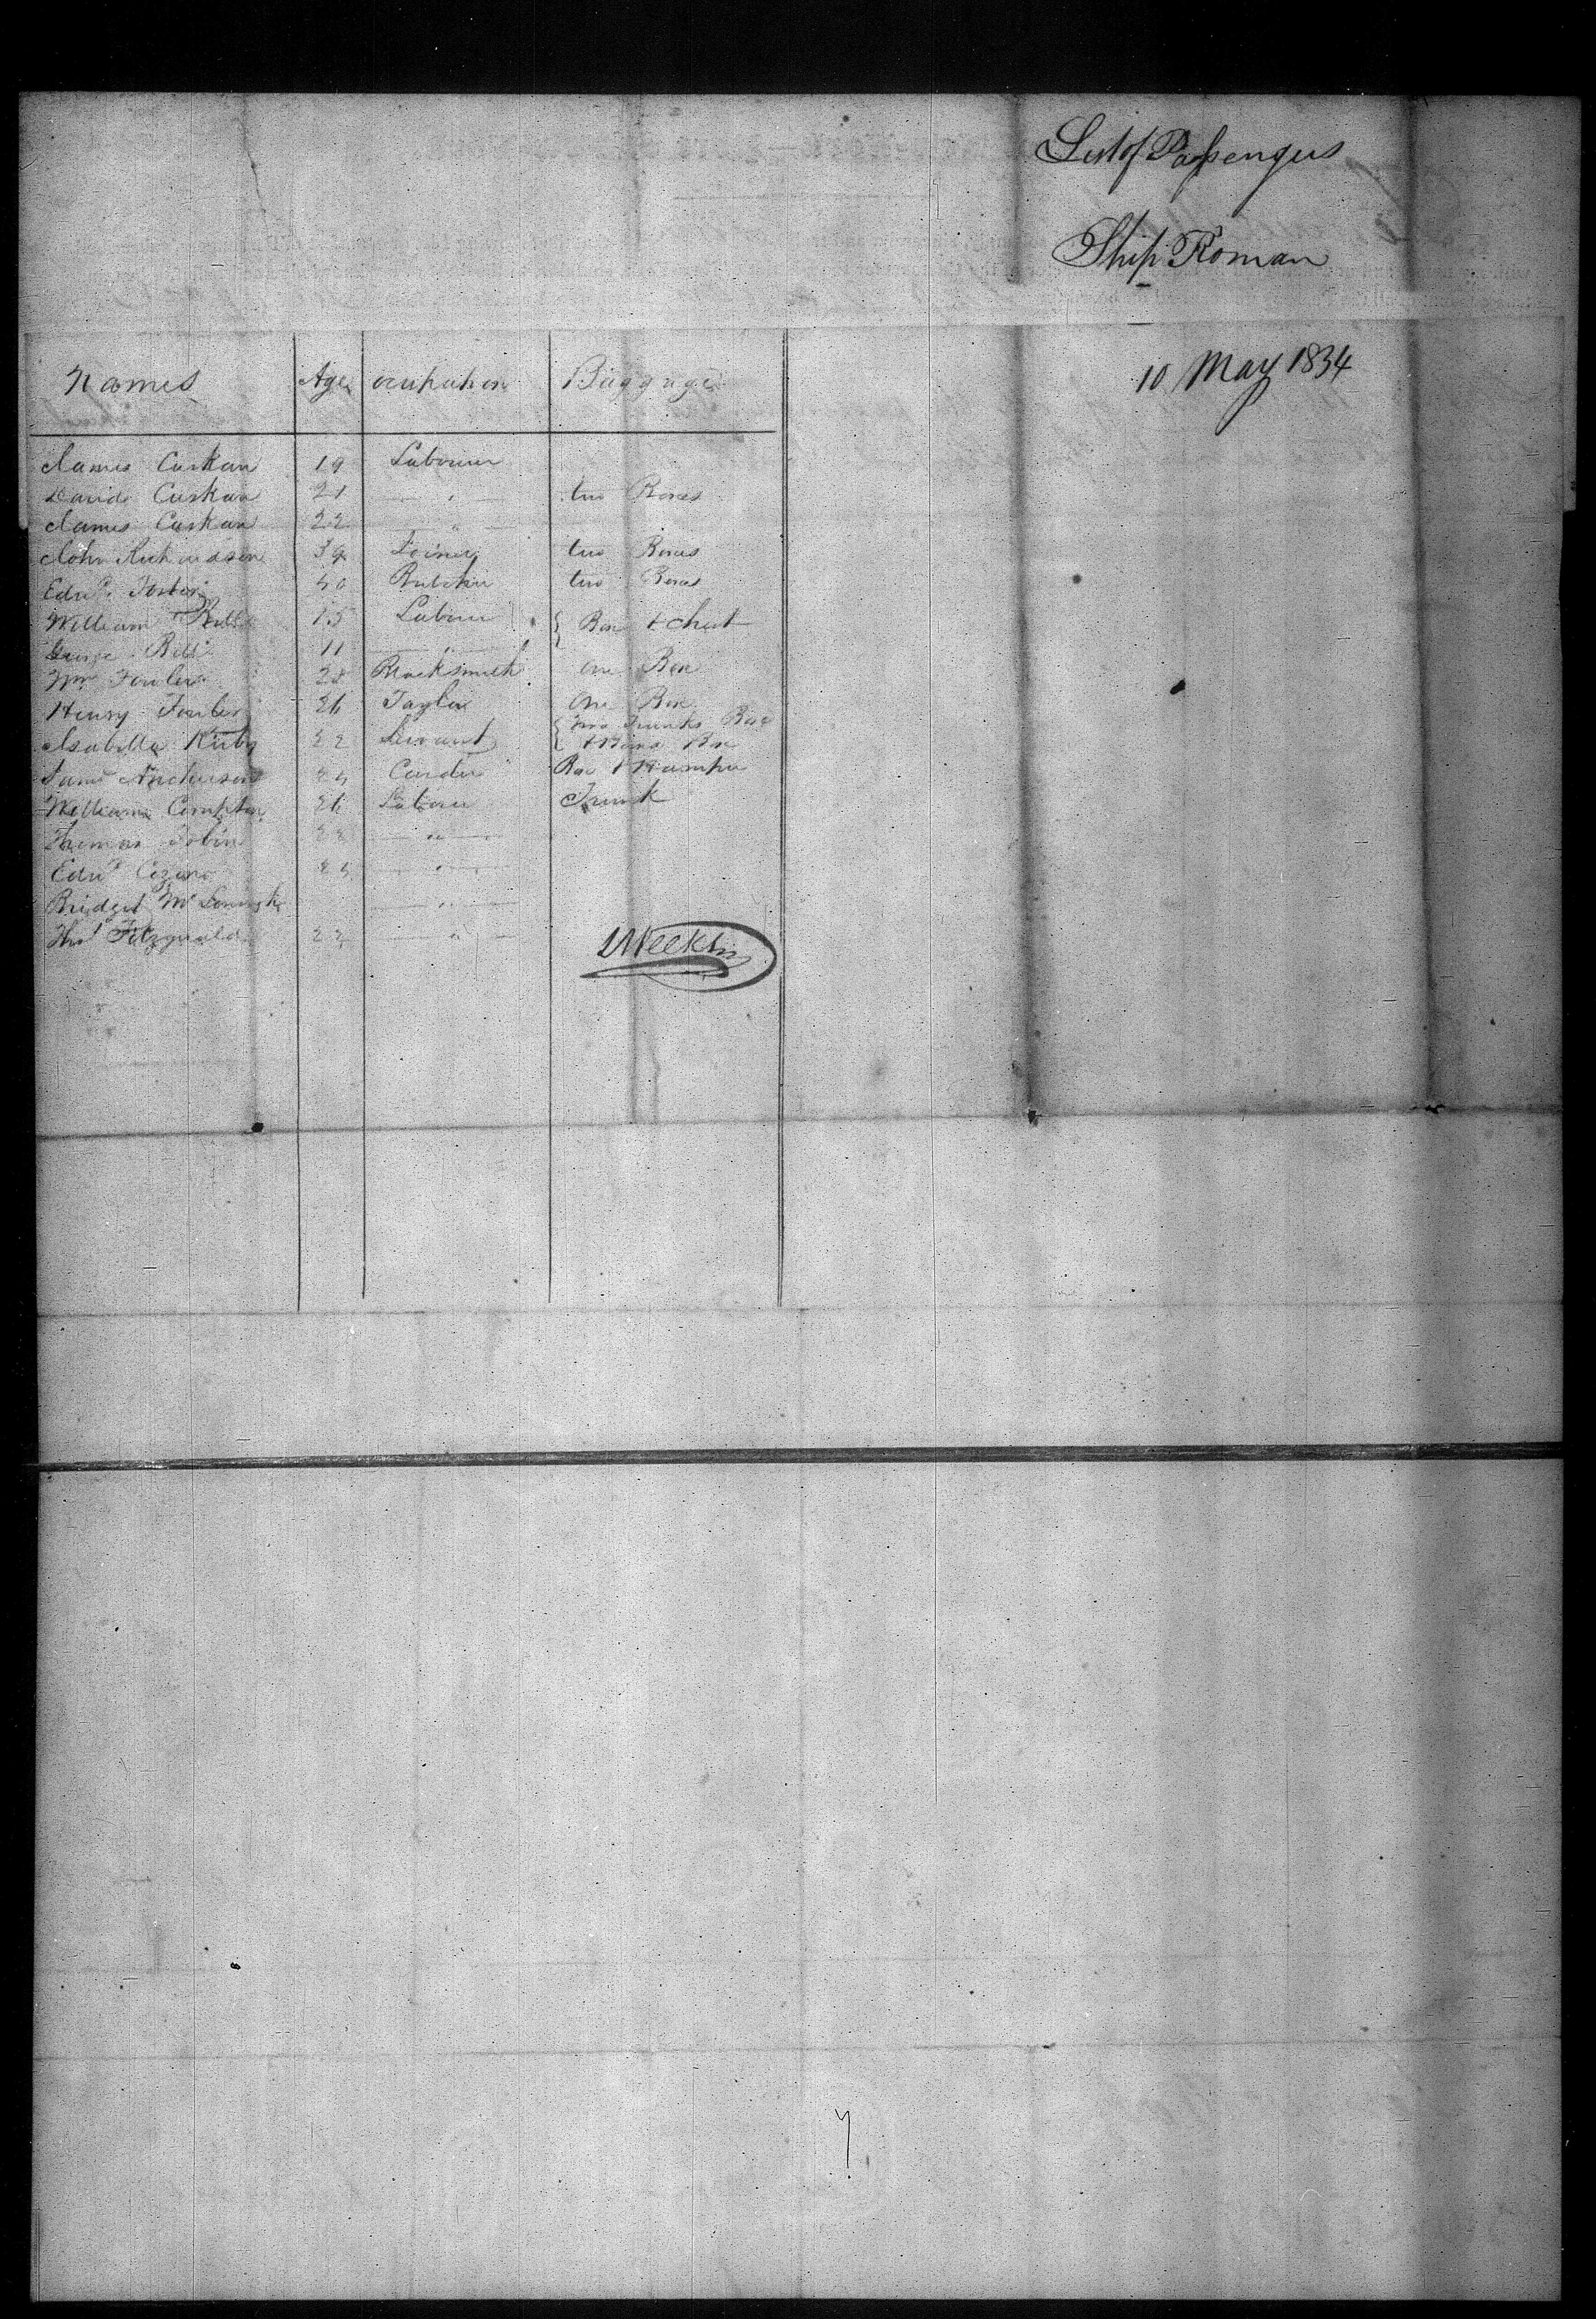 List of Passengers
Ship Roman
10 May 1834
Names Age ocupation Baggage
James Curkan 19 Labourer
David Curkan 21 — " — two Boxes
James Curkan 22 — " —
John Richardson 39 Joiner two Boxes
Edwd. Foster Butcher two Boxes
William Bell 15 Labour Box & chest
George Bell 11 — " —
Wm Fowler Blacksmith one Box
Henry Fowler 26 Taylor One Box
Isabella Kirby 22 Servant two Trunks Box
& Band Box
Saml Anderson Carder Box & Hamper
William Compton 26 Labour Trunk
Thomas Tobin 22 — " —
Edwd — " —
Bridget — " —
Thos Fitzgerald 22 — " —